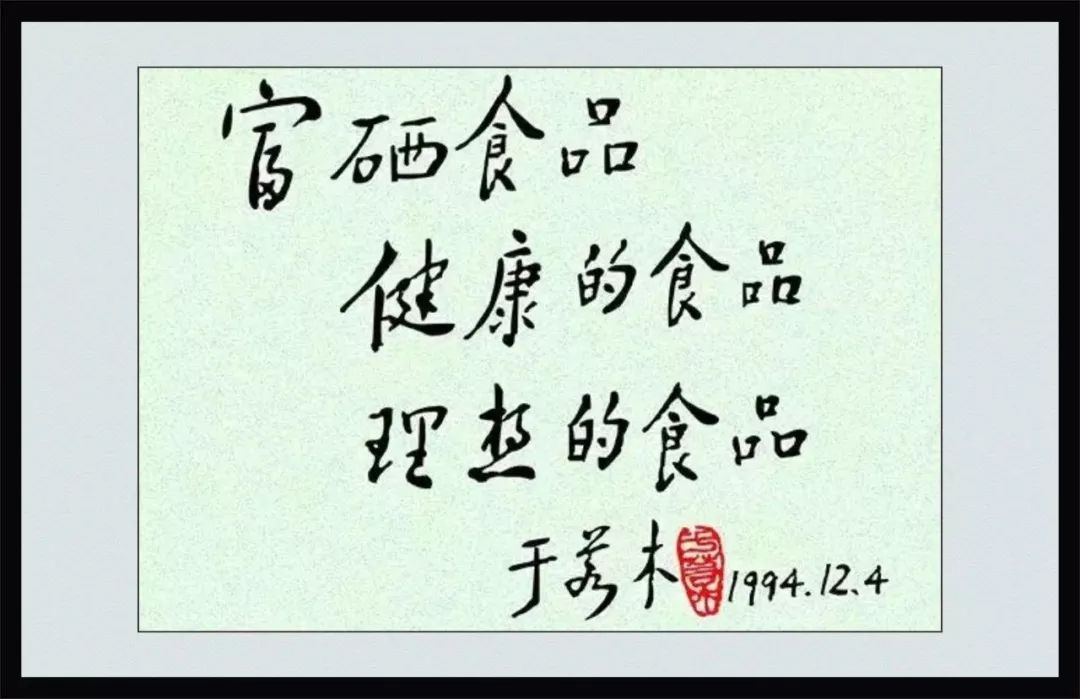 富硒食品
健康的食品
理想的食品
于若木 1994.12.4